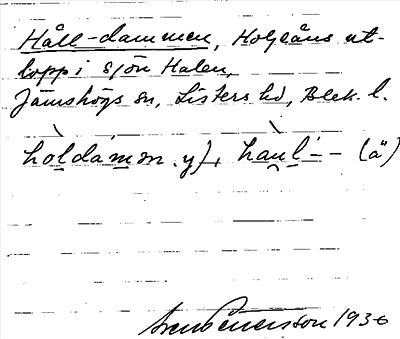 Håll-dammen, Holjeåns ut-
lopp i sjön Halen,
Jämshögs sn, Listers hd, Blek. l.
hòldámən. y), hau̯l-́- (ä)
Sven Benson 1936